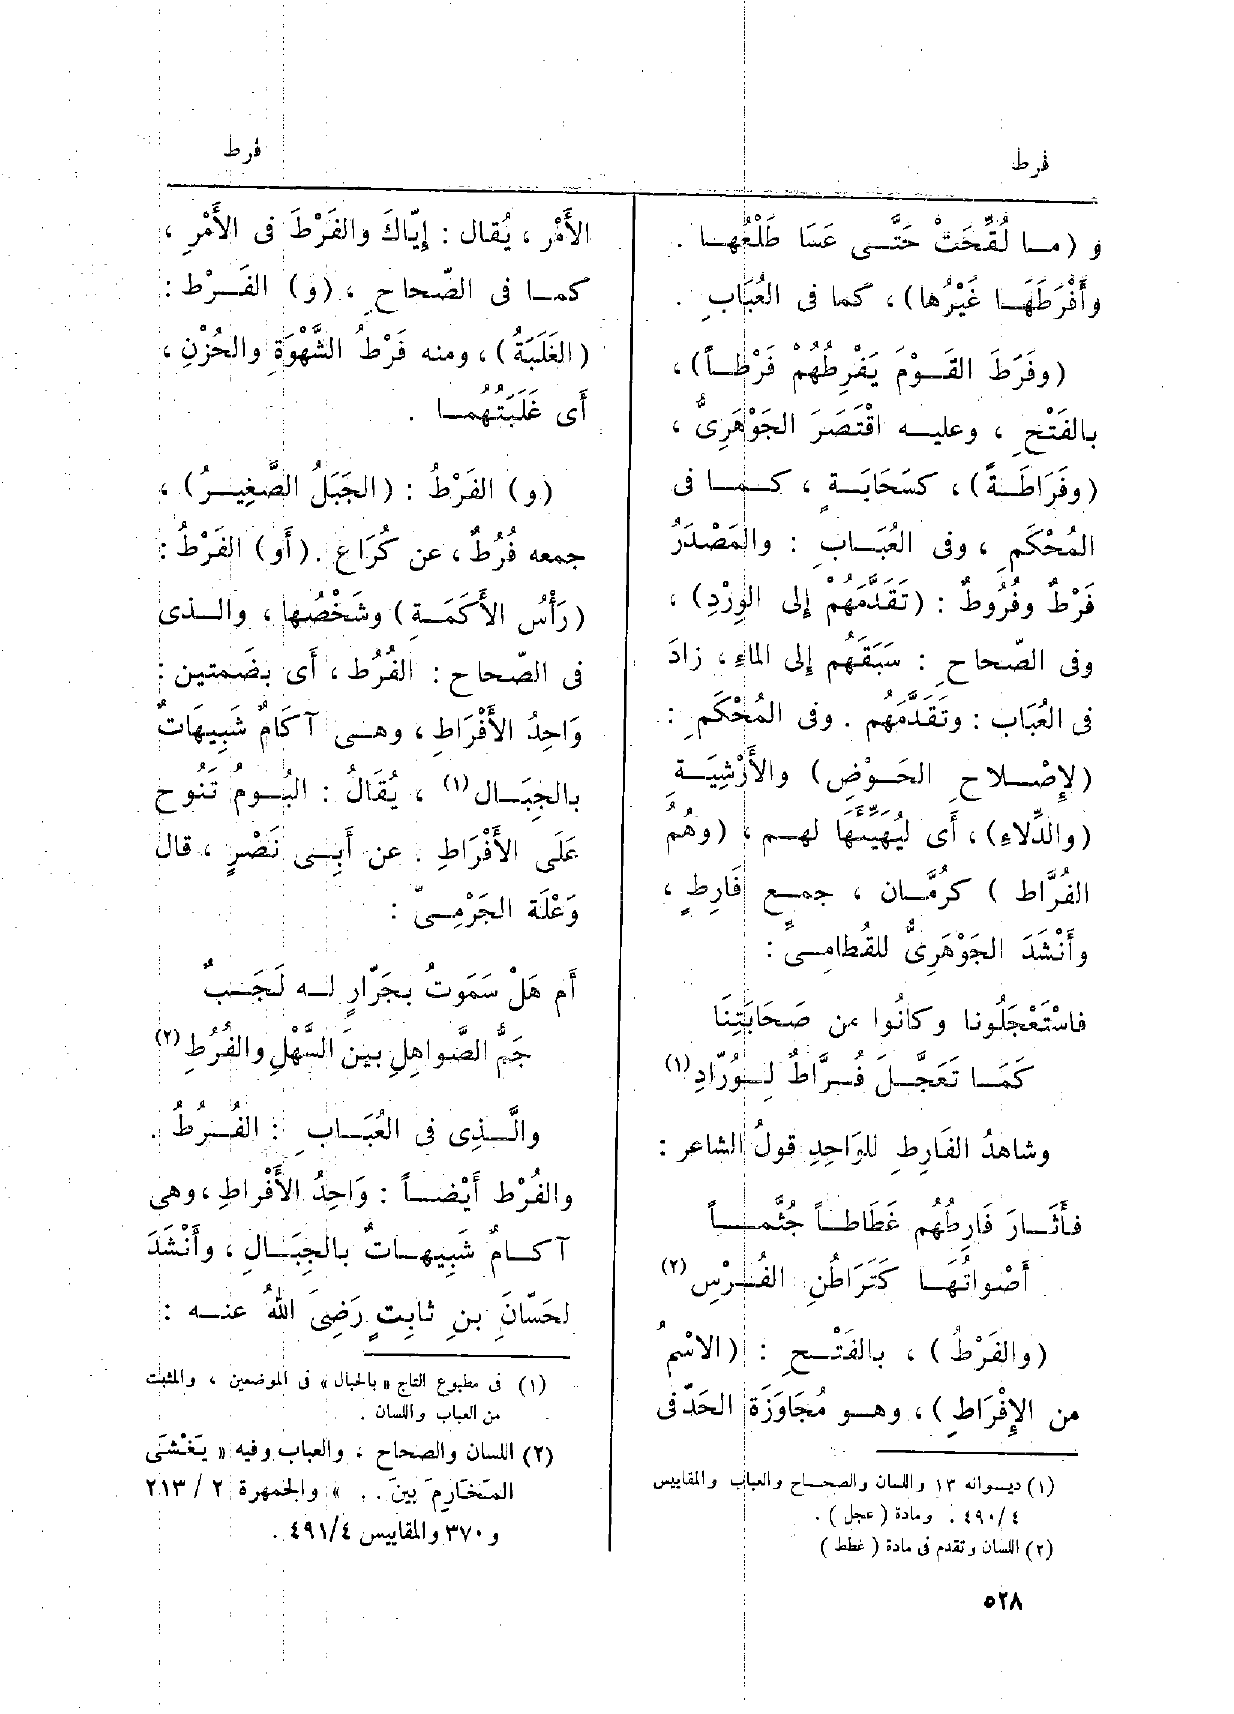 فرط
فرط
و (مـا لُقِّحَتْ حَتَّـى عَسَا طَلْعُهـا .
وأَفْرَطَهَـا غَيْرُها) ، كما فى العُبَابِ .
(وفَرَطَ القَـوْمَ يَفْرِطُهُمْ فَرْطـاً) ،
بالفَتْحِ ، وعليـه اقْتَصَرَ الجَوْهَرِىُّ ،
(وفَرَاطَـةً) ، كسَحَابَـةٍ ، كـمـا فى
المُحْكَمِ ، وفى العُبَـابِ : والمَصْدَرُ
فَرْطٌ وفُرُوطٌ : (تَقَدَّمَهُمْ إلى الوِرْدِ) ،
وفى الصّحاحِ : سَبَقَهُم إلى الماءِ ، زادَ
فى العُبَاب : وتَقَدَّمَهُم . وفى المُحْكَمِ :
(لإِصْـلاحِ الحَـوْضِ) والأَرْشِيَـةِ
(والدِّلاءِ) ، أَى لِيُهَيِّئَهَا لهـم ، (وهُمُ
الفُرَّاط ) كرُمَّـان ، جمـع فَارِطٍ ،
وأَنْشَدَ الجَوْهَرِىُّ للقُطامِـىِّ :
فاسْتَعْجَلُونا وكانُوا من صَحَابَتِنَا
كَمَـا تَعَجَّـلَ فُـرَّاطٌ لِـوُرّادِ (١)
وشاهدُ الفَارِطِ للوَاحِدِ قولُ الشاعر :
فـأَثَـارَ فَارِطُهُم غَطَاطـاً جُثَّمـاً
أَصْواتُهَـا كَتَرَاطُنِ الفُـرْسِ (٢)
(والفَرْطُ) ، بالفَتْـحِ : (الاسْمُ
من الإِفْرَاطِ) ، وهـو مُجَاوَزَة الحَدّ فى
(١) ديـوانه ١٣ واللسان والصحـاح والعباب والمقاييس
٤٩٠/٤ . ومادة ( عجل ) .
(٢) اللسان وتقدم فى مادة ( غطط )
٥٢٨
الأَمْر ، يُقال : إِيّاكَ والفَرْطَ فى الأَمْرِ ،
كمـا فى الصّحاحِ ، (و) الفَـرْط :
(الغَلَبَةُ) ، ومنه فَرْطُ الشَّهْوَةِ والحُزْنِ ،
أَى غَلَبَتُهُمـا .
(و) الفَرْطُ : (الجَبَلُ الصَّغِيـرُ) ،
جمعه فُرُطٌ ، عن كُرَاع . (أَو) الفَرْطُ :
(رَأْسُ الأَكَمَـةِ) وشَخْصُها ، والـذى
فى الصّحاح : الفُرُط ، أَى بضَمتين :
وَاحِدُ الأَفْرَاطِ ، وهـى آكَامٌ شَبِيهَاتٌ
بالجِبَـال (١) ، يُقَالُ : البُـومُ تَنُوح
عَلَى الأَفْرَاطِ . عن أَبِـى نَصْرٍ ، قال
وَعْلَة الجَرْمِـىّ :
أَم هَلْ سَمَوتُ بجَرّارٍ لـه لَجَـبٌ
جَمُّ الصَّواهِلِ بينَ السَّهْلِ والفُرُطِ (٢)
والَّـذِى فى العُبَـابِ : الفُـرُطُ .
والفُرْط أَيْضـاً : وَاحِدُ الأَفْراطِ ، وهى
آكـامٌ شَبِيهـاتٌ بالجِبَـالِ ، وأَنْشَدَ
لحَسّانَ بنِ ثابِتٍ رَضِىَ اللهُ عنـه :
(١) فى مطبوع التاج « بالحبال » فى الموضعين ، والمثبت
من العباب واللسان .
(٢) اللسان والصحاح ، والعباب وفيه « يَغْشَى
المَخَارِمَ بينَ . . » والجمهرة ٢ /٢١٣
و ٣٧٠ والمقاييس ٤٩١/٤ .